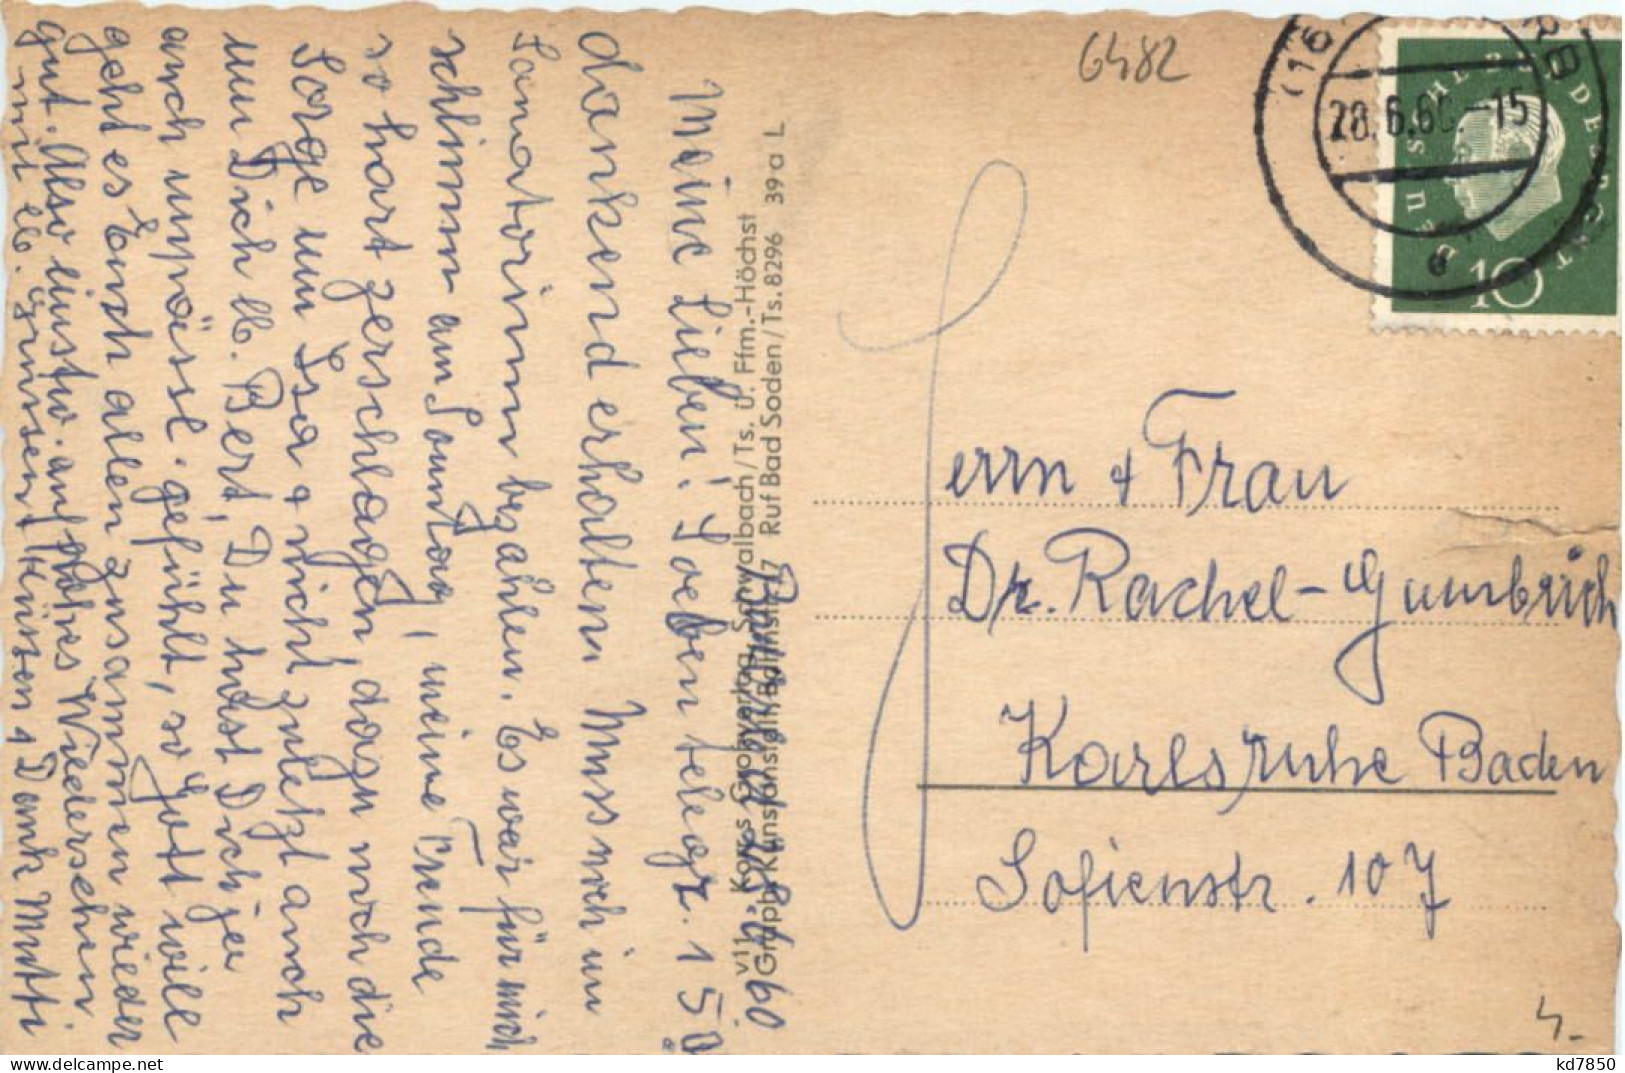 6482
(16
ORB
28.6.60.-15
e
DEUTSCHE BUNDESPOST
10
Herrn & Frau
Dr. Rachel-Gumbrich
Karlsruhe Baden
Sofienstr. 107
4.-
v11 Kores Graphverlag, Schwalbach/Ts. u. Ffm.-Höchst
Ruf Bad Soden/Ts. 8296 39 a L
28.6.60
Meine Lieben! Soeben telegr. 150
dankend erhalten Muss noch im
Sanatorium bezahlen. Es war für mich
schlimm am Sonntag, meine Freude
so hart zerschlagen, dazu noch die
Sorge um Isa & nicht zuletzt auch
um Dich lb. Bert, Du hast Dich ja
auch unpässl. gefühlt, so Gott will
geht es Euch allen zusammen wieder
gut. Also auf Wiedersehen
mit lb. Grüssen Küssen & Dank Mutti
kd7850